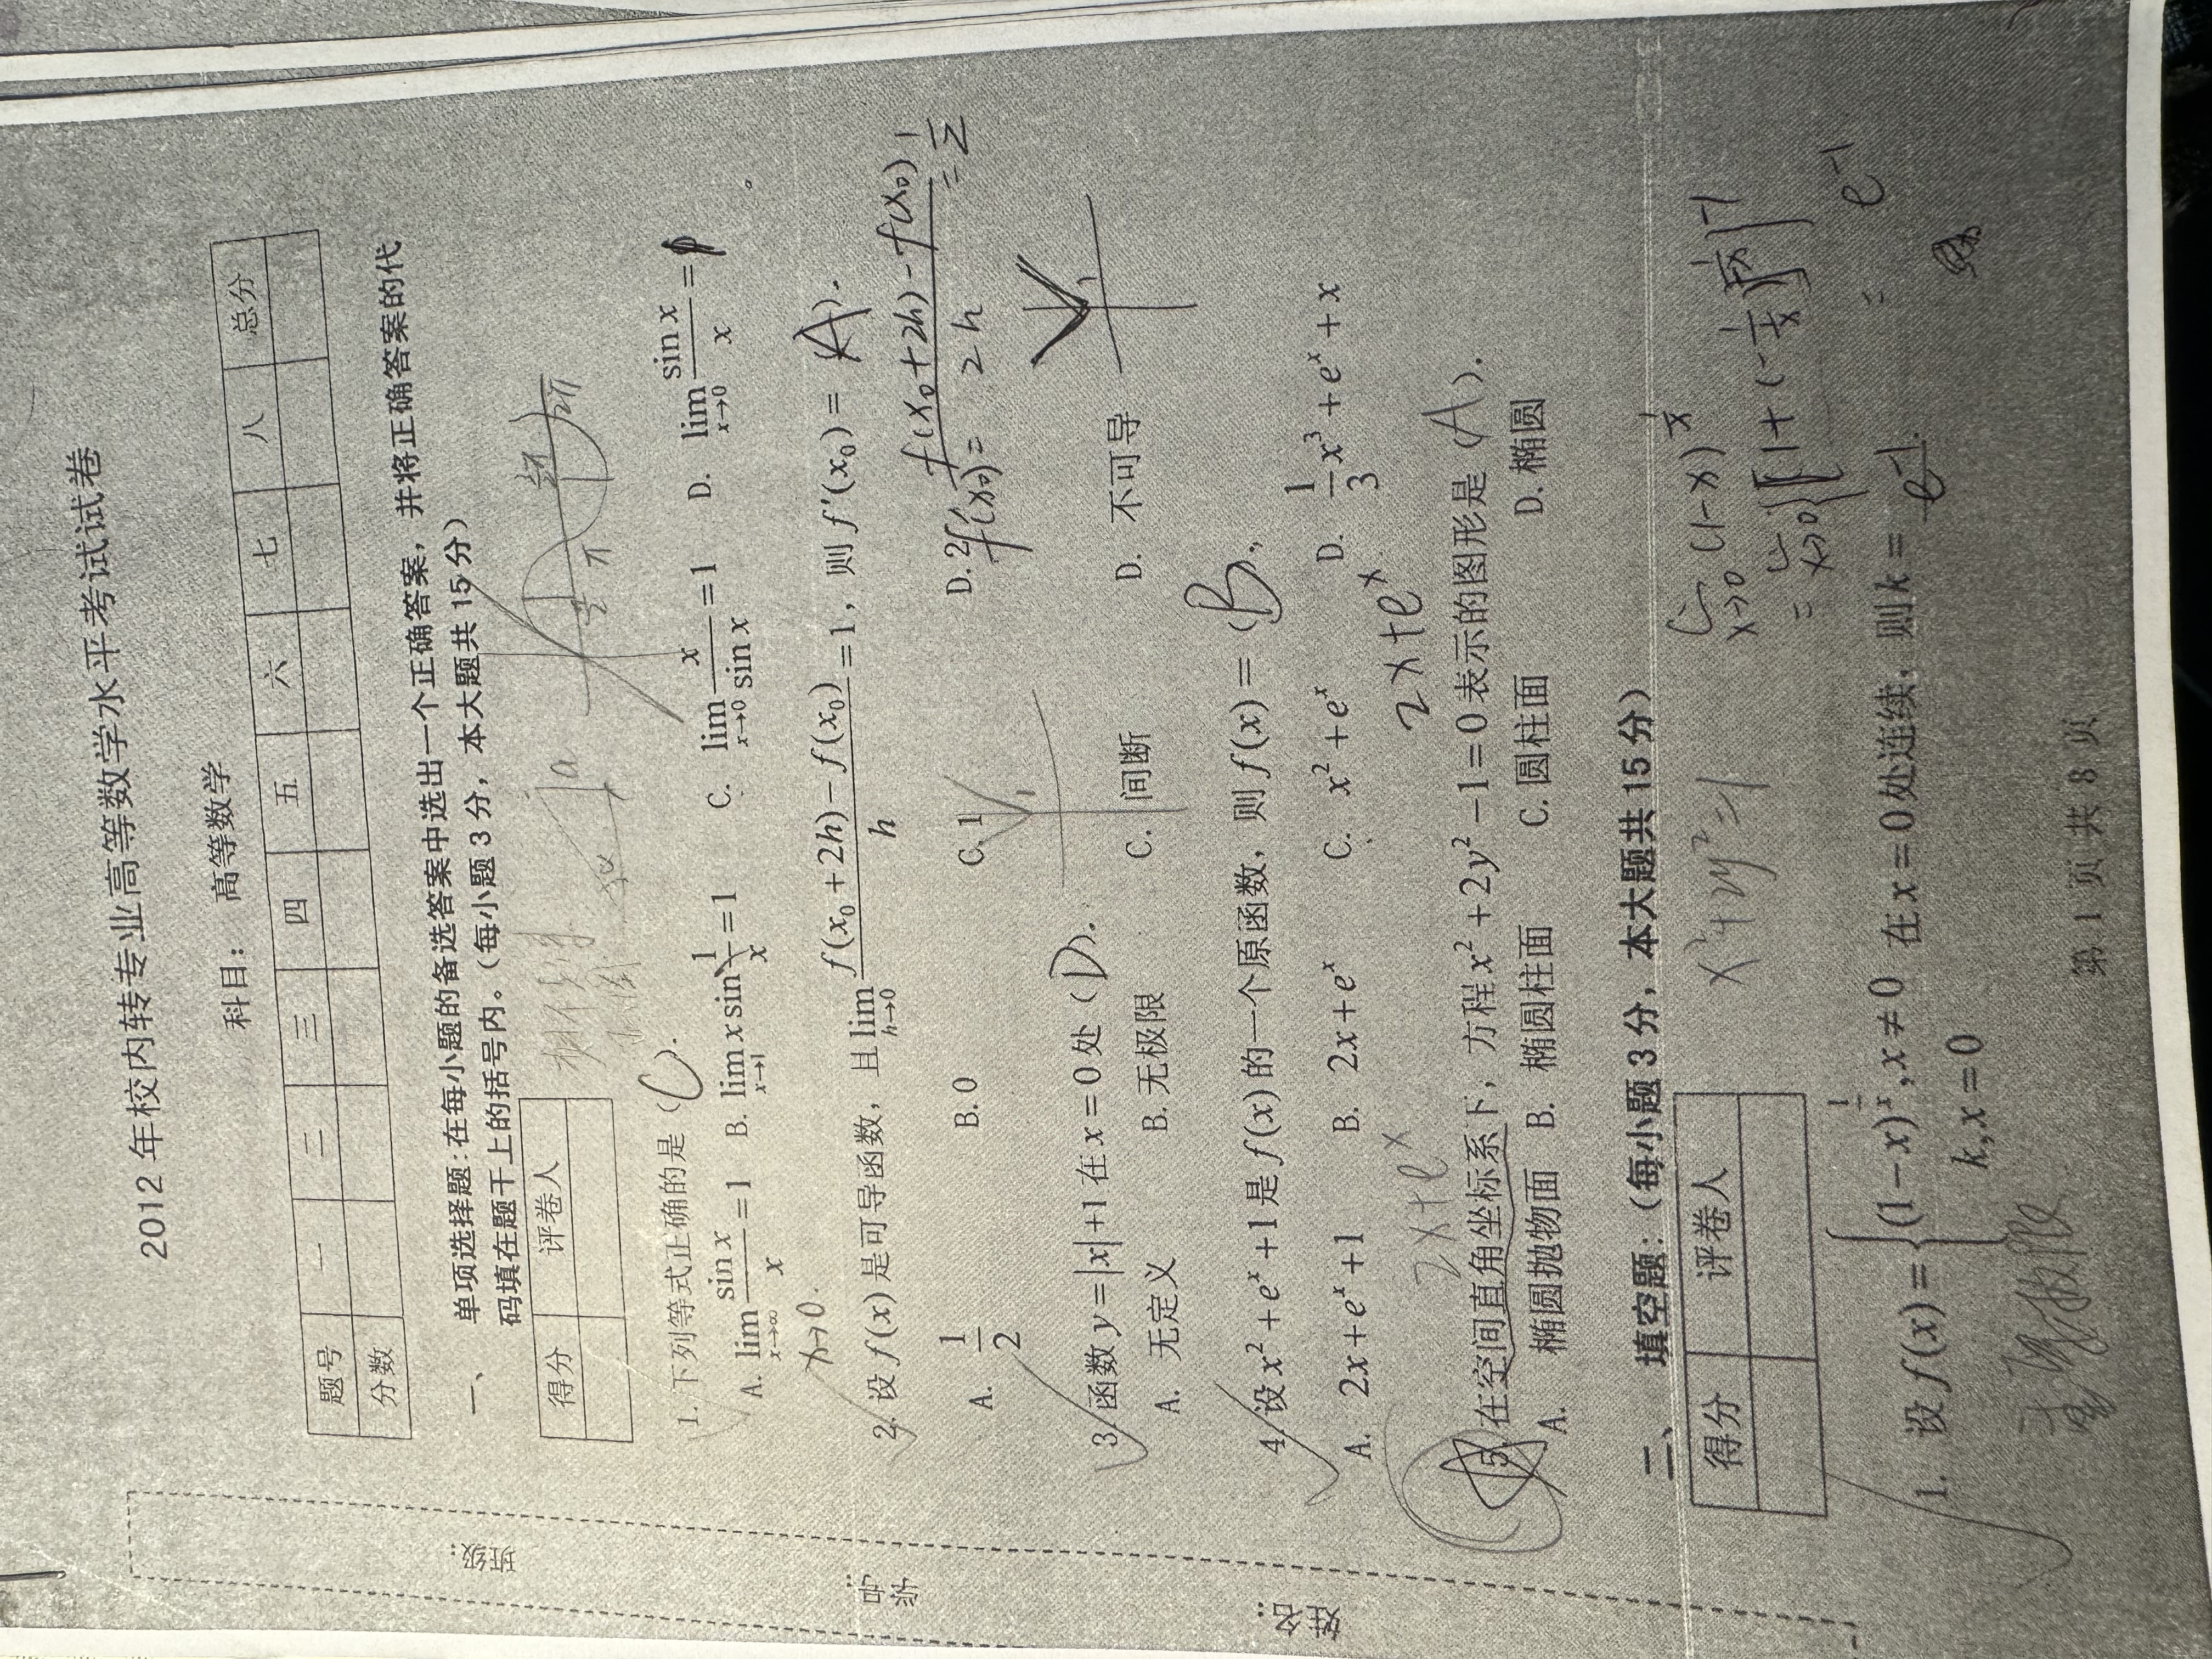 2012 年校内转专业高等数学水平考试试卷
科目： 高等数学
题号 一 二 三 四 五 六 七 八 总分
分数
一、 单项选择题:在每小题的备选答案中选出一个正确答案，并将正确答案的代
码填在题干上的括号内。（每小题 3 分，本大题共 15 分）
得分 评卷人
π 2π
1. 下列等式正确的是 (C).
A. lim_{x→∞} sin x / x = 1 B. lim_{x→1} x sin 1/x = 1 C. lim_{x→0} x / sin x = 1 D. lim_{x→0} sin x / x =
x→0.
2. 设 f(x) 是可导函数，且 lim_{h→0} [f(x₀+2h) − f(x₀)] / h = 1，则 f′(x₀) = (A).
A. 1/2 B. 0 C. 1 D. 2
f′(x₀) = [f(x₀+2h) − f(x₀)] / 2h = 1/2
3. 函数 y = |x|+1 在 x = 0 处 (D).
A. 无定义 B. 无极限 C. 间断 D. 不可导
4. 设 x² + eˣ + 1 是 f(x) 的一个原函数，则 f(x) = (B).
A. 2x + eˣ + 1 B. 2x + eˣ C. x² + eˣ D. 1/3 x³ + eˣ + x
2x + eˣ 2x + eˣ
5. 在空间直角坐标系下，方程 x² + 2y² − 1 = 0 表示的图形是 (A).
A. 椭圆抛物面 B. 椭圆柱面 C. 圆柱面 D. 椭圆
二、 填空题：（每小题 3 分，本大题共 15 分）
得分 评卷人
x² + 2y² = 1
lim_{x→0} (1−x)^{1/x}
= e⁻¹
1. 设 f(x) = { (1−x)^{1/x}, x ≠ 0
k, x = 0 在 x = 0 处连续，则 k = e⁻¹.
第 1 页 共 8 页
班级：
学号：
姓名：